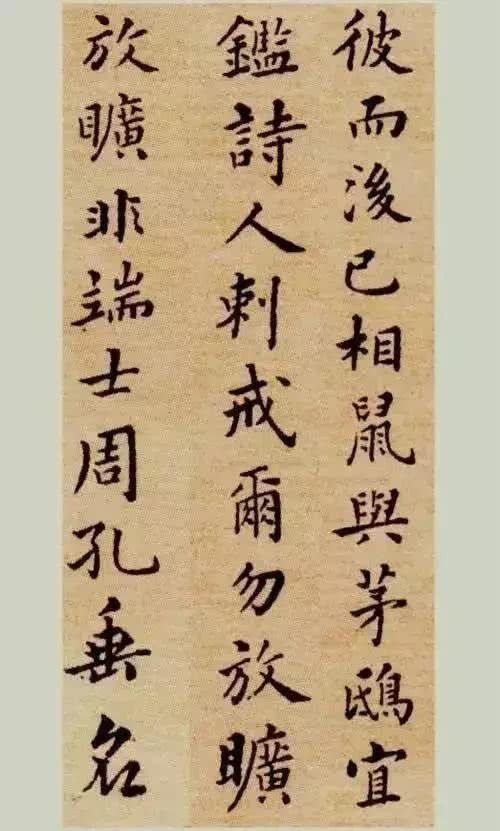 彼而後已相鼠與茅鴟宜
鑑詩人刺戒爾勿放曠
放曠非端士周孔垂名